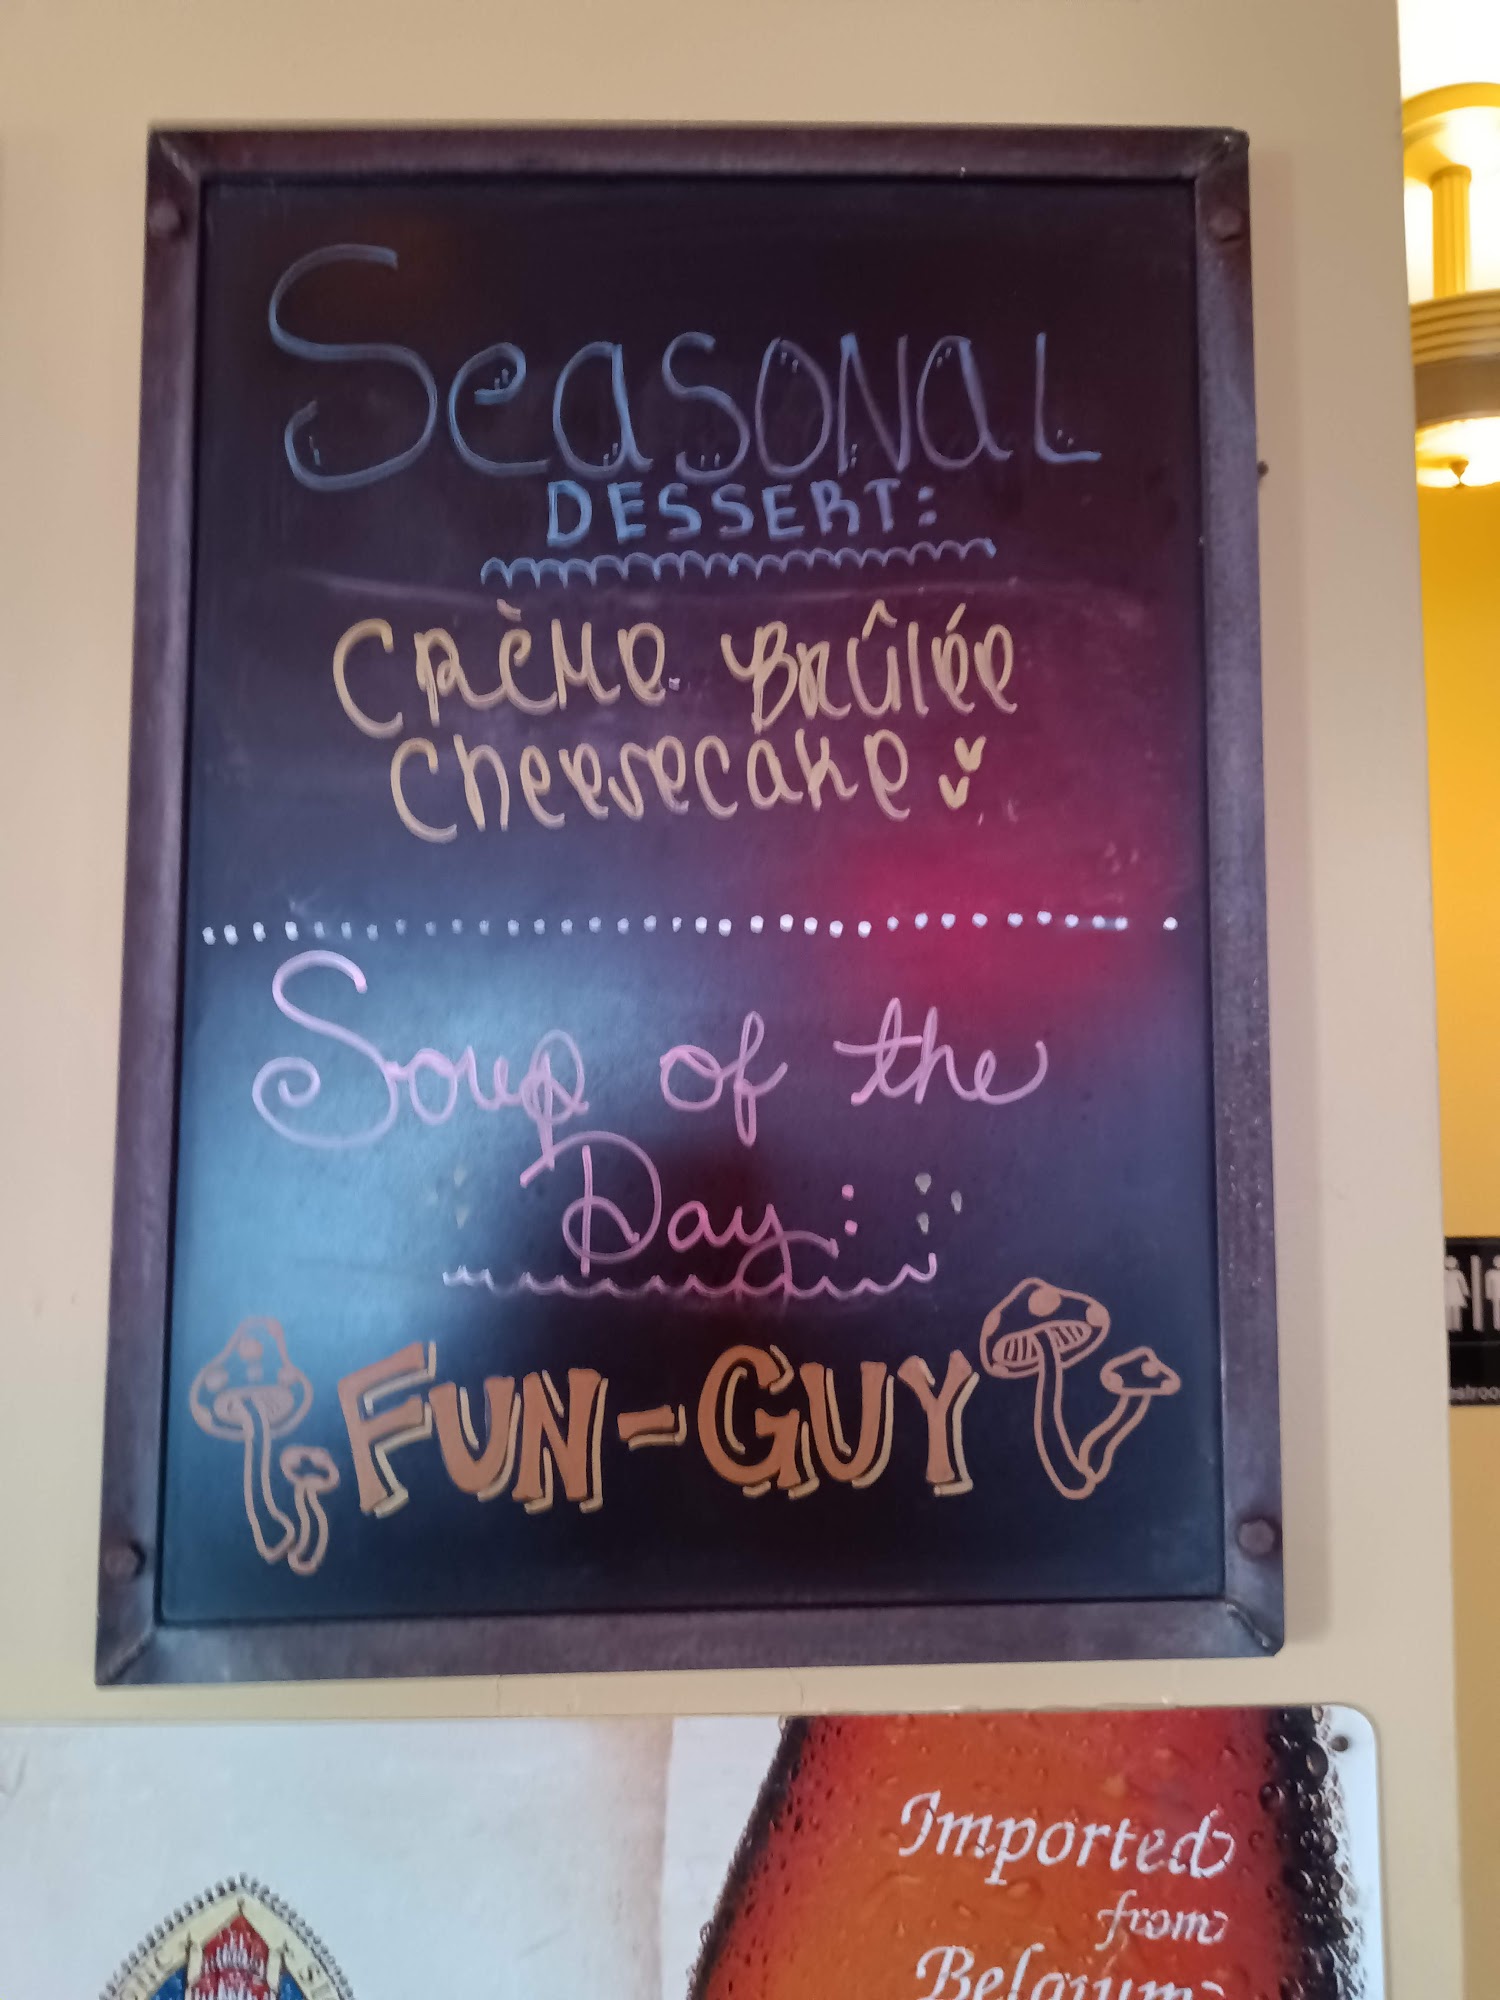 Seasonal
DESSERT:
Crème Brûlée
Cheesecake
Soup of the
Day:
FUN-GUY
Imported
from
Belgium